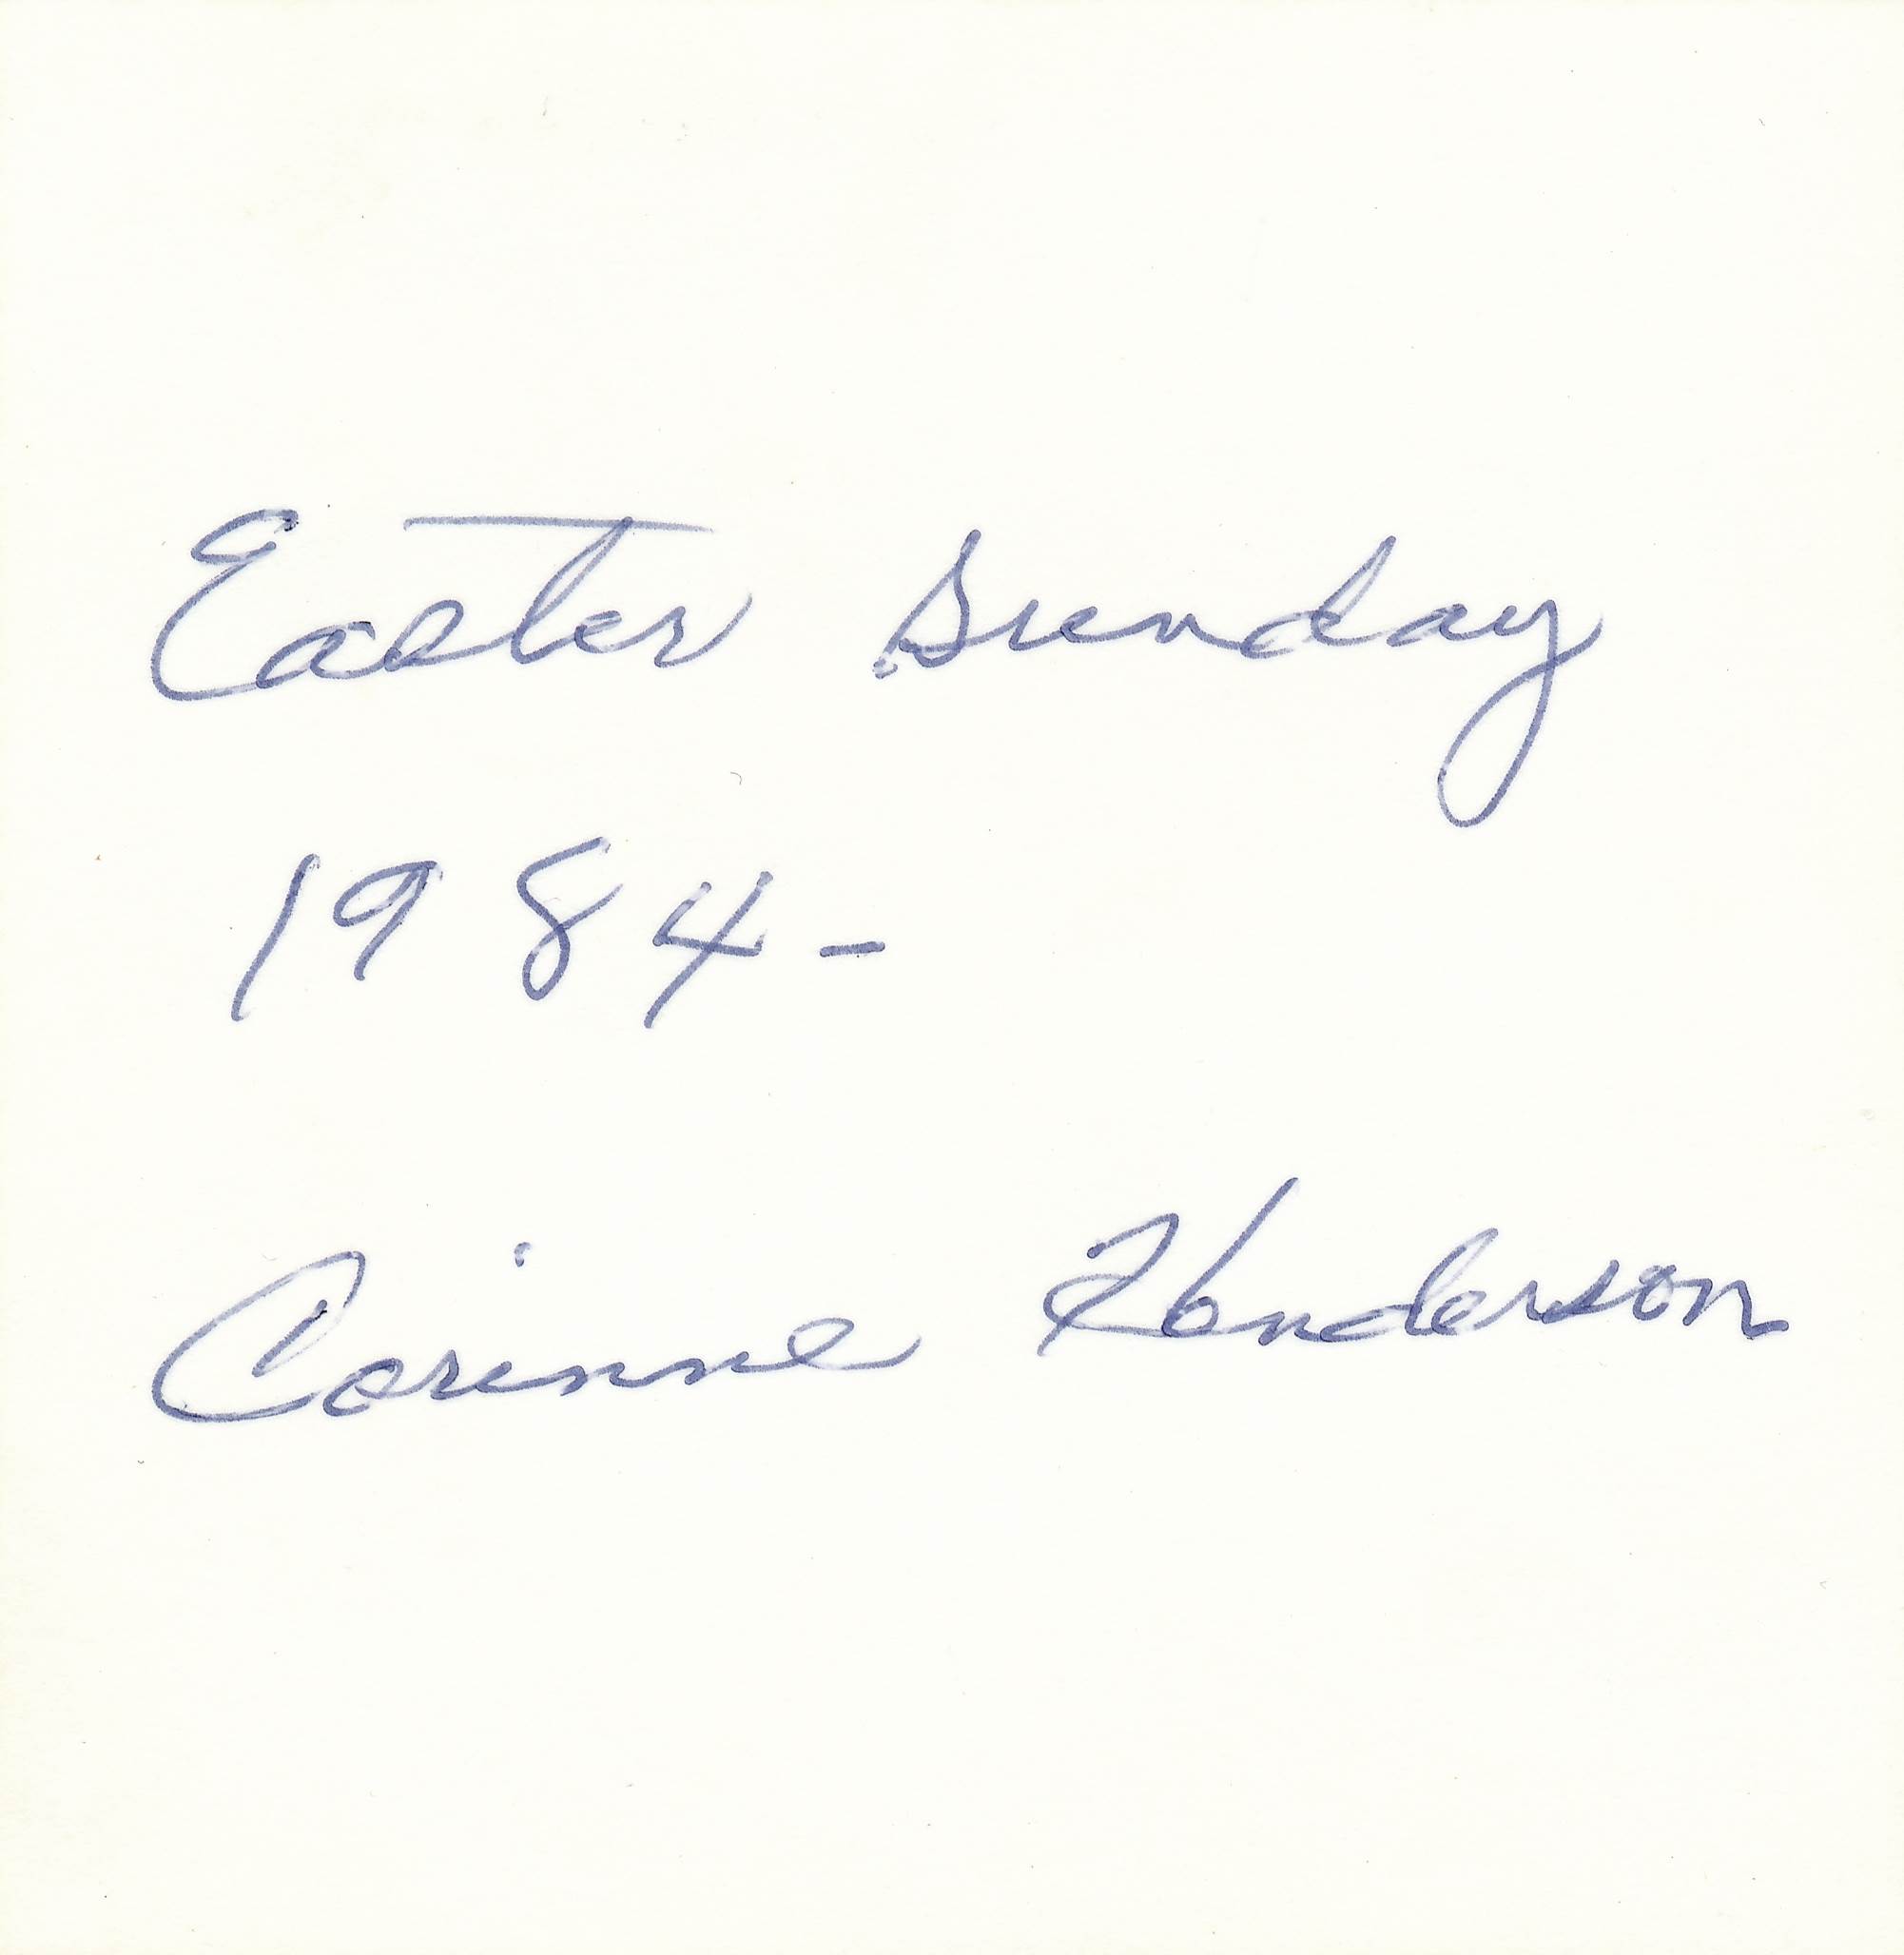 Easter Sunday
1984-
Corinne Henderson